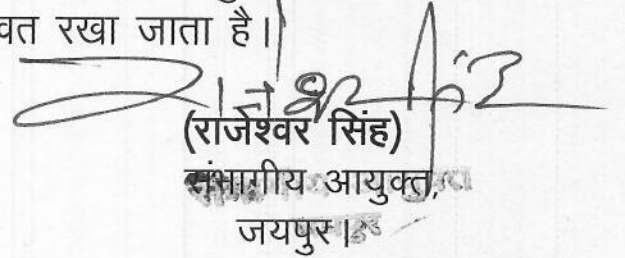 वत रखा जाता है।
(राजेश्वर सिंह)
संभागीय आयुक्त,
जयपुर।